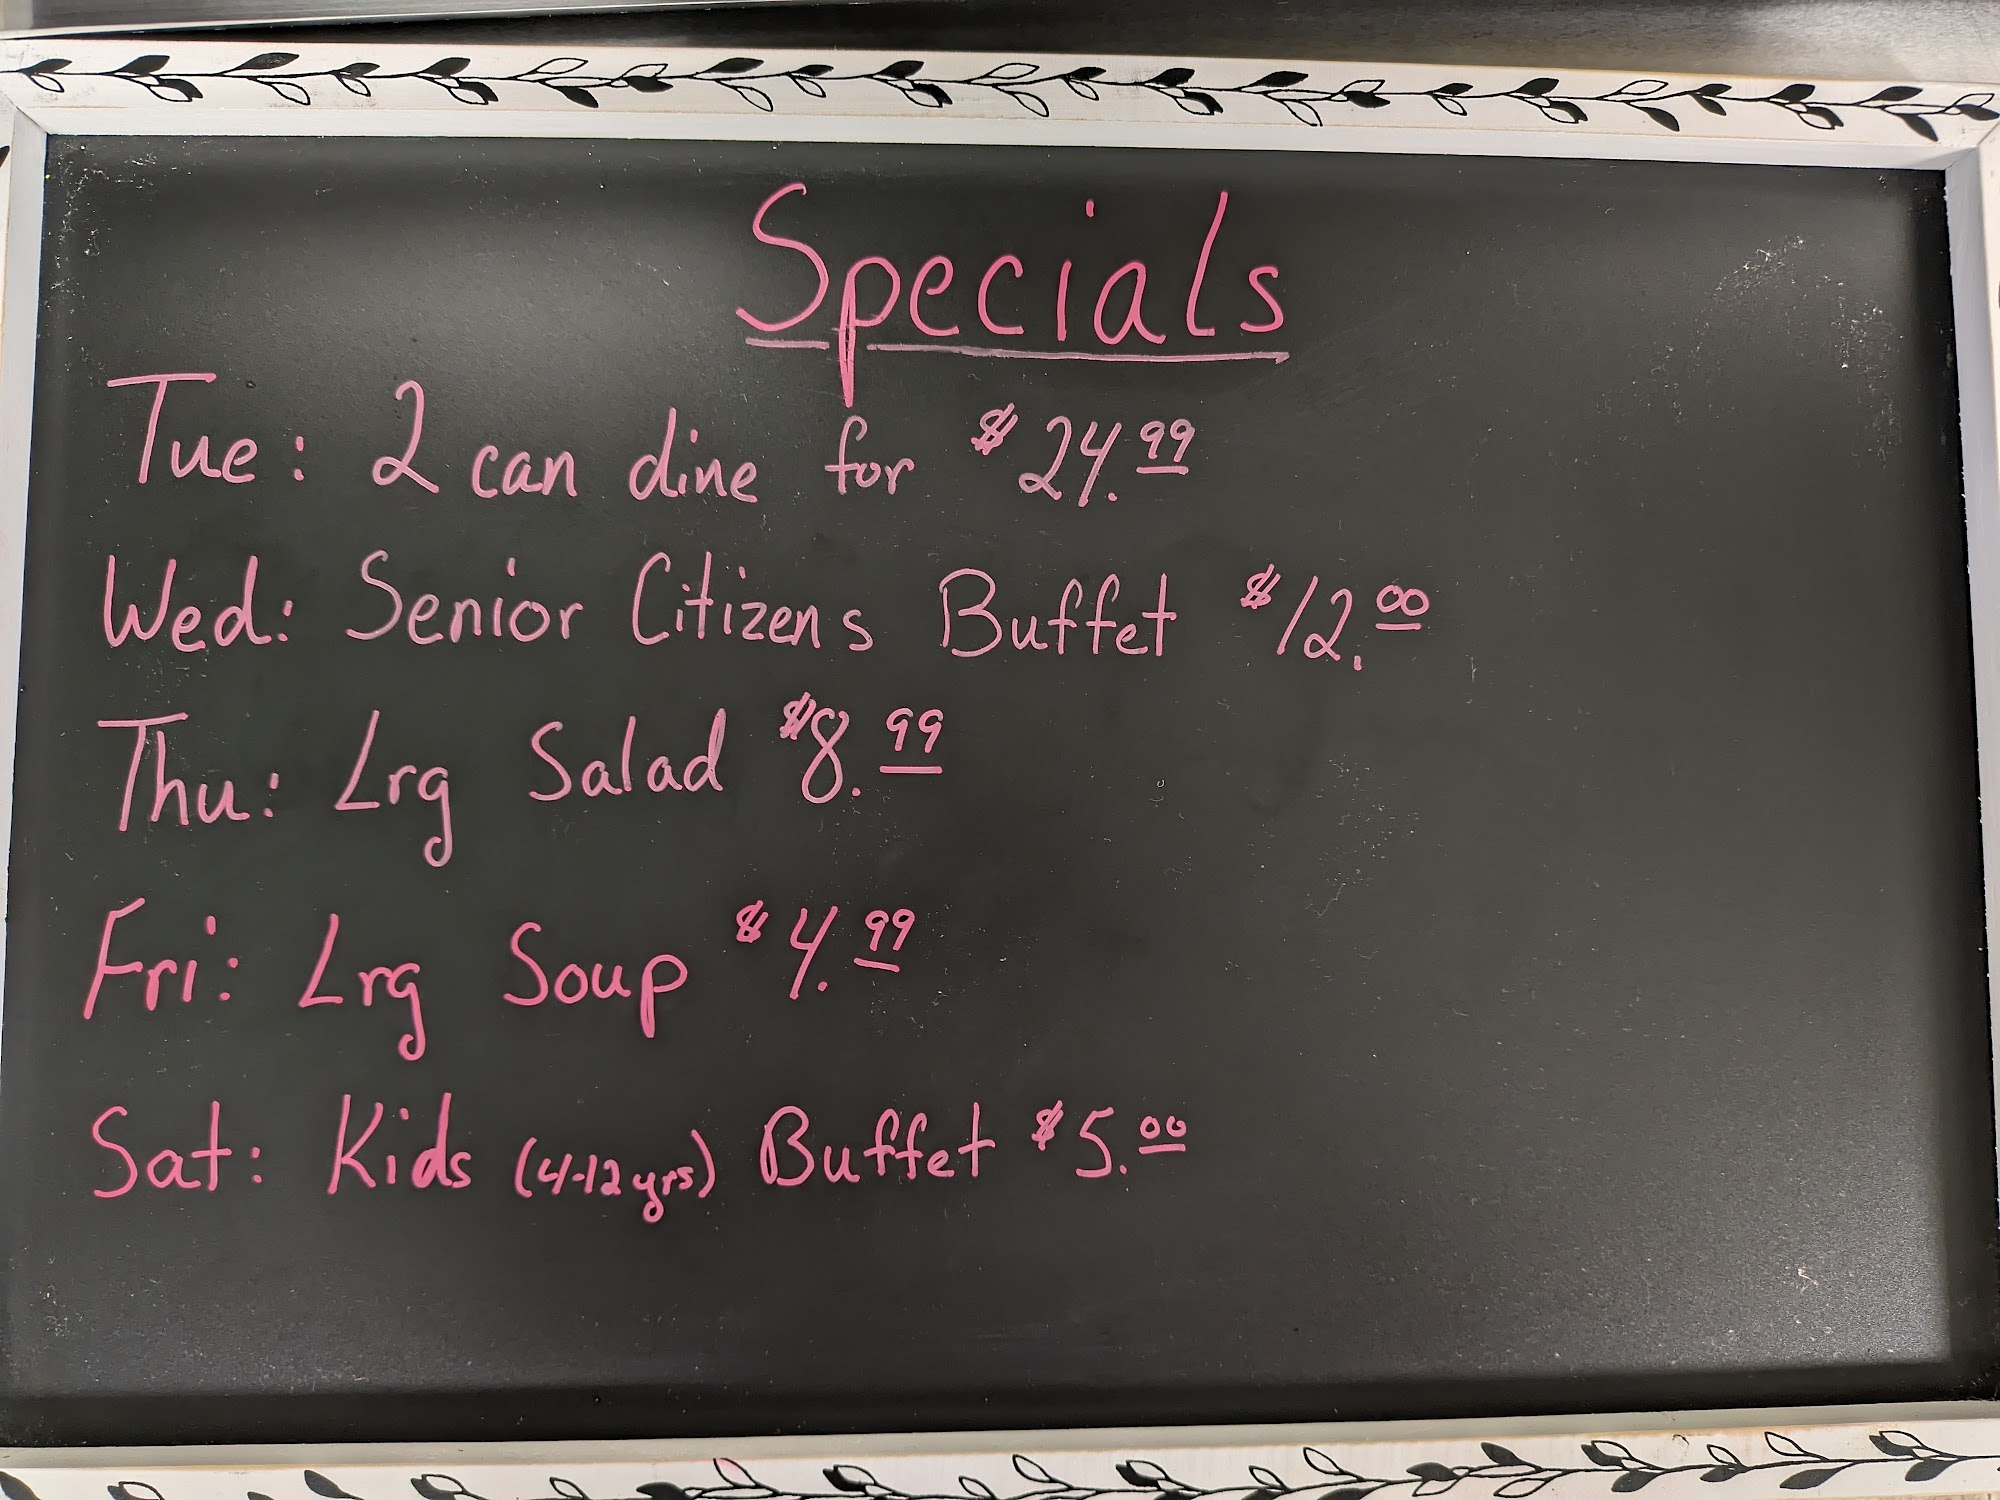 Specials
Tue: 2 can dine for $24.99
Wed: Senior Citizens Buffet $12.00
Thu: Lrg Salad $8.99
Fri: Lrg Soup $4.99
Sat: Kids (4-12yrs) Buffet $5.00